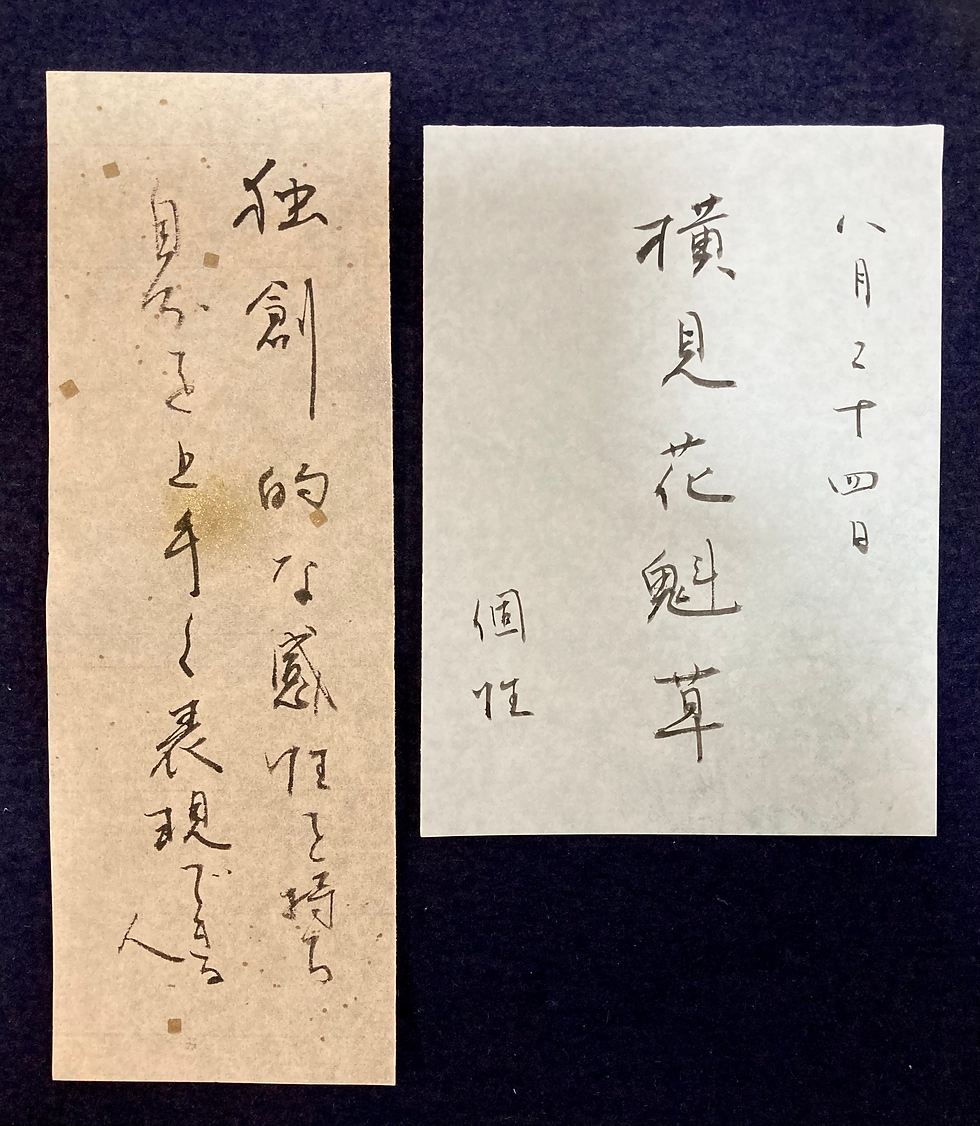 八月二十四日
横見花魁草
個性
独創的な感性を持ち
自分を上手く表現できる
人